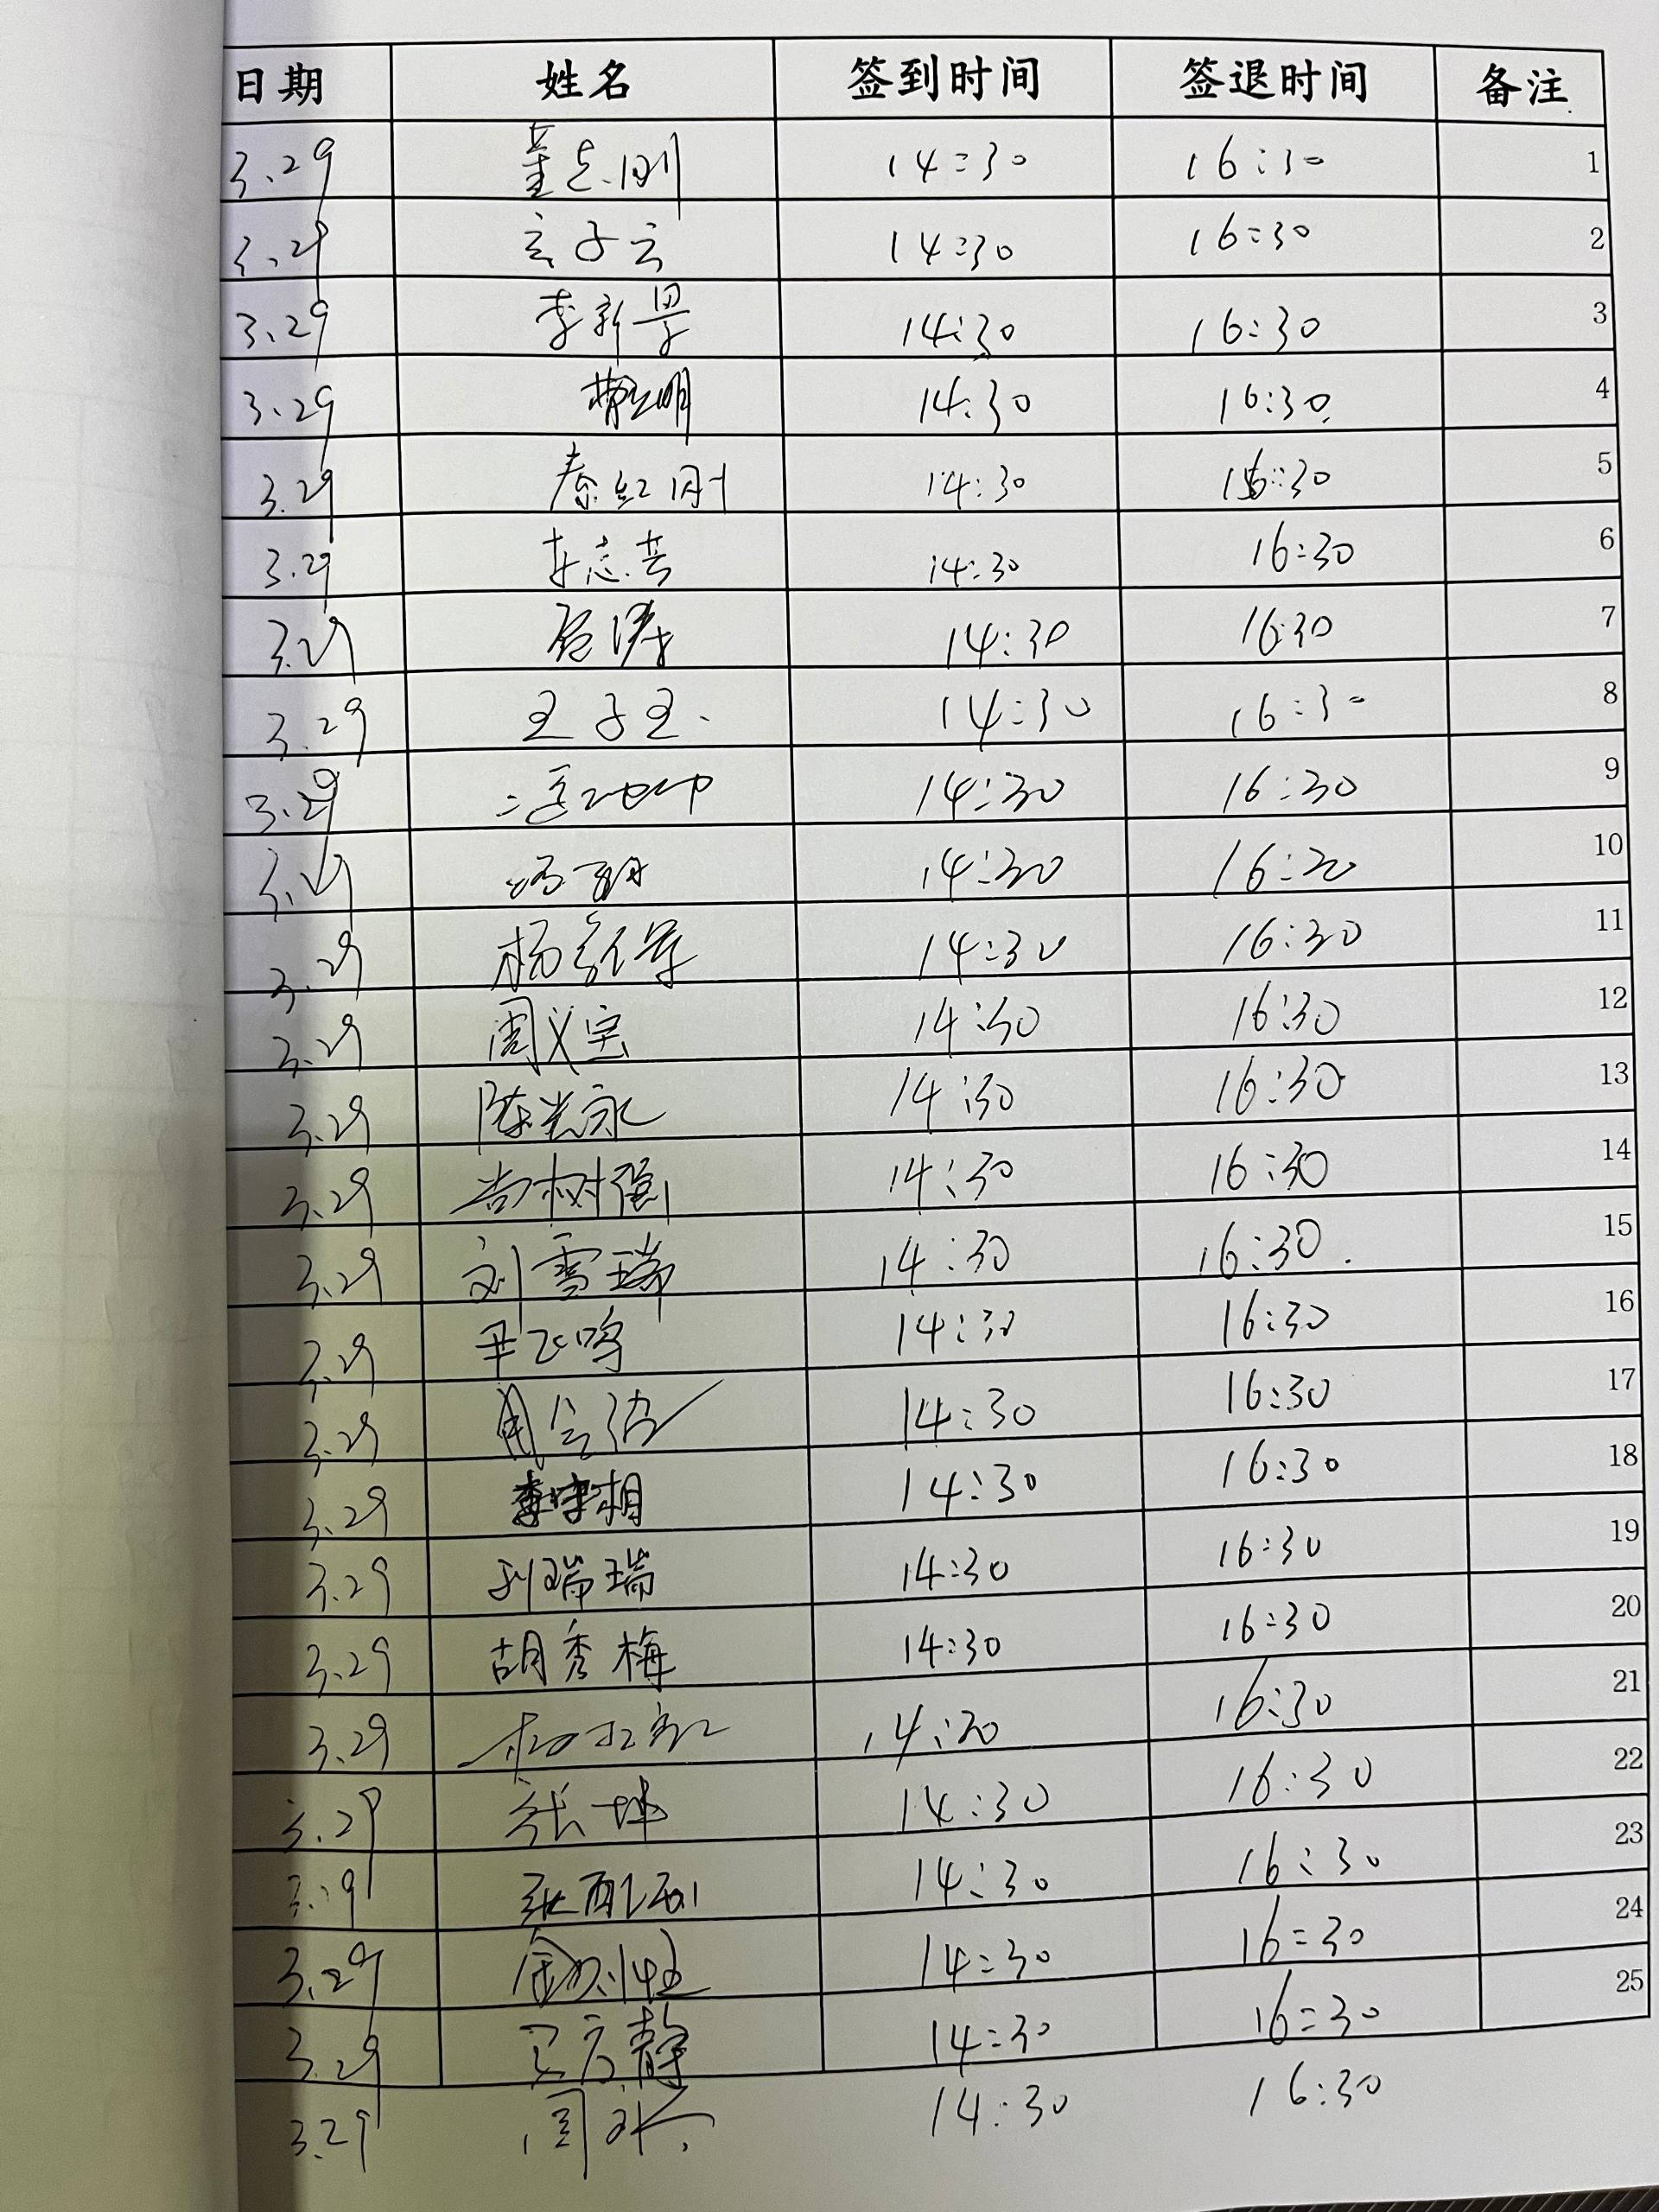 日期 姓名 签到时间 签退时间 备注
3.29 董志刚 14:30 16:30 1
3.29 子云 14:30 16:30 2
3.29 李新 14:30 16:30 3
3.29 明 14:30 16:30 4
3.29 秦红刚 14:30 16:30 5
3.29 李志芸 14:30 16:30 6
3.29 涛 14:30 16:30 7
3.29 王子玉 14:30 16:30 8
3.29 14:30 16:30 9
3.29 14:30 16:30 10
3.29 杨军 14:30 16:30 11
3.29 周义宝 14:30 16:30 12
3.29 陈光永 14:30 16:30 13
3.29 尚树强 14:30 16:30 14
3.29 刘雪瑞 14:30 16:30. 15
3.29 尹飞鸣 14:30 16:30 16
3.29 周会洁 14:30 16:30 17
3.29 李相 14:30 16:30 18
3.29 刘瑞瑞 14:30 16:30 19
3.29 胡秀梅 14:30 16:30 20
3.29 14:30 16:30 21
3.29 张坤 14:30 16:30 22
3.29 张 14:30 16:30 23
3.29 14:30 16:30 24
3.29 静 14:30 16:30 25
3.29 周 14:30 16:30